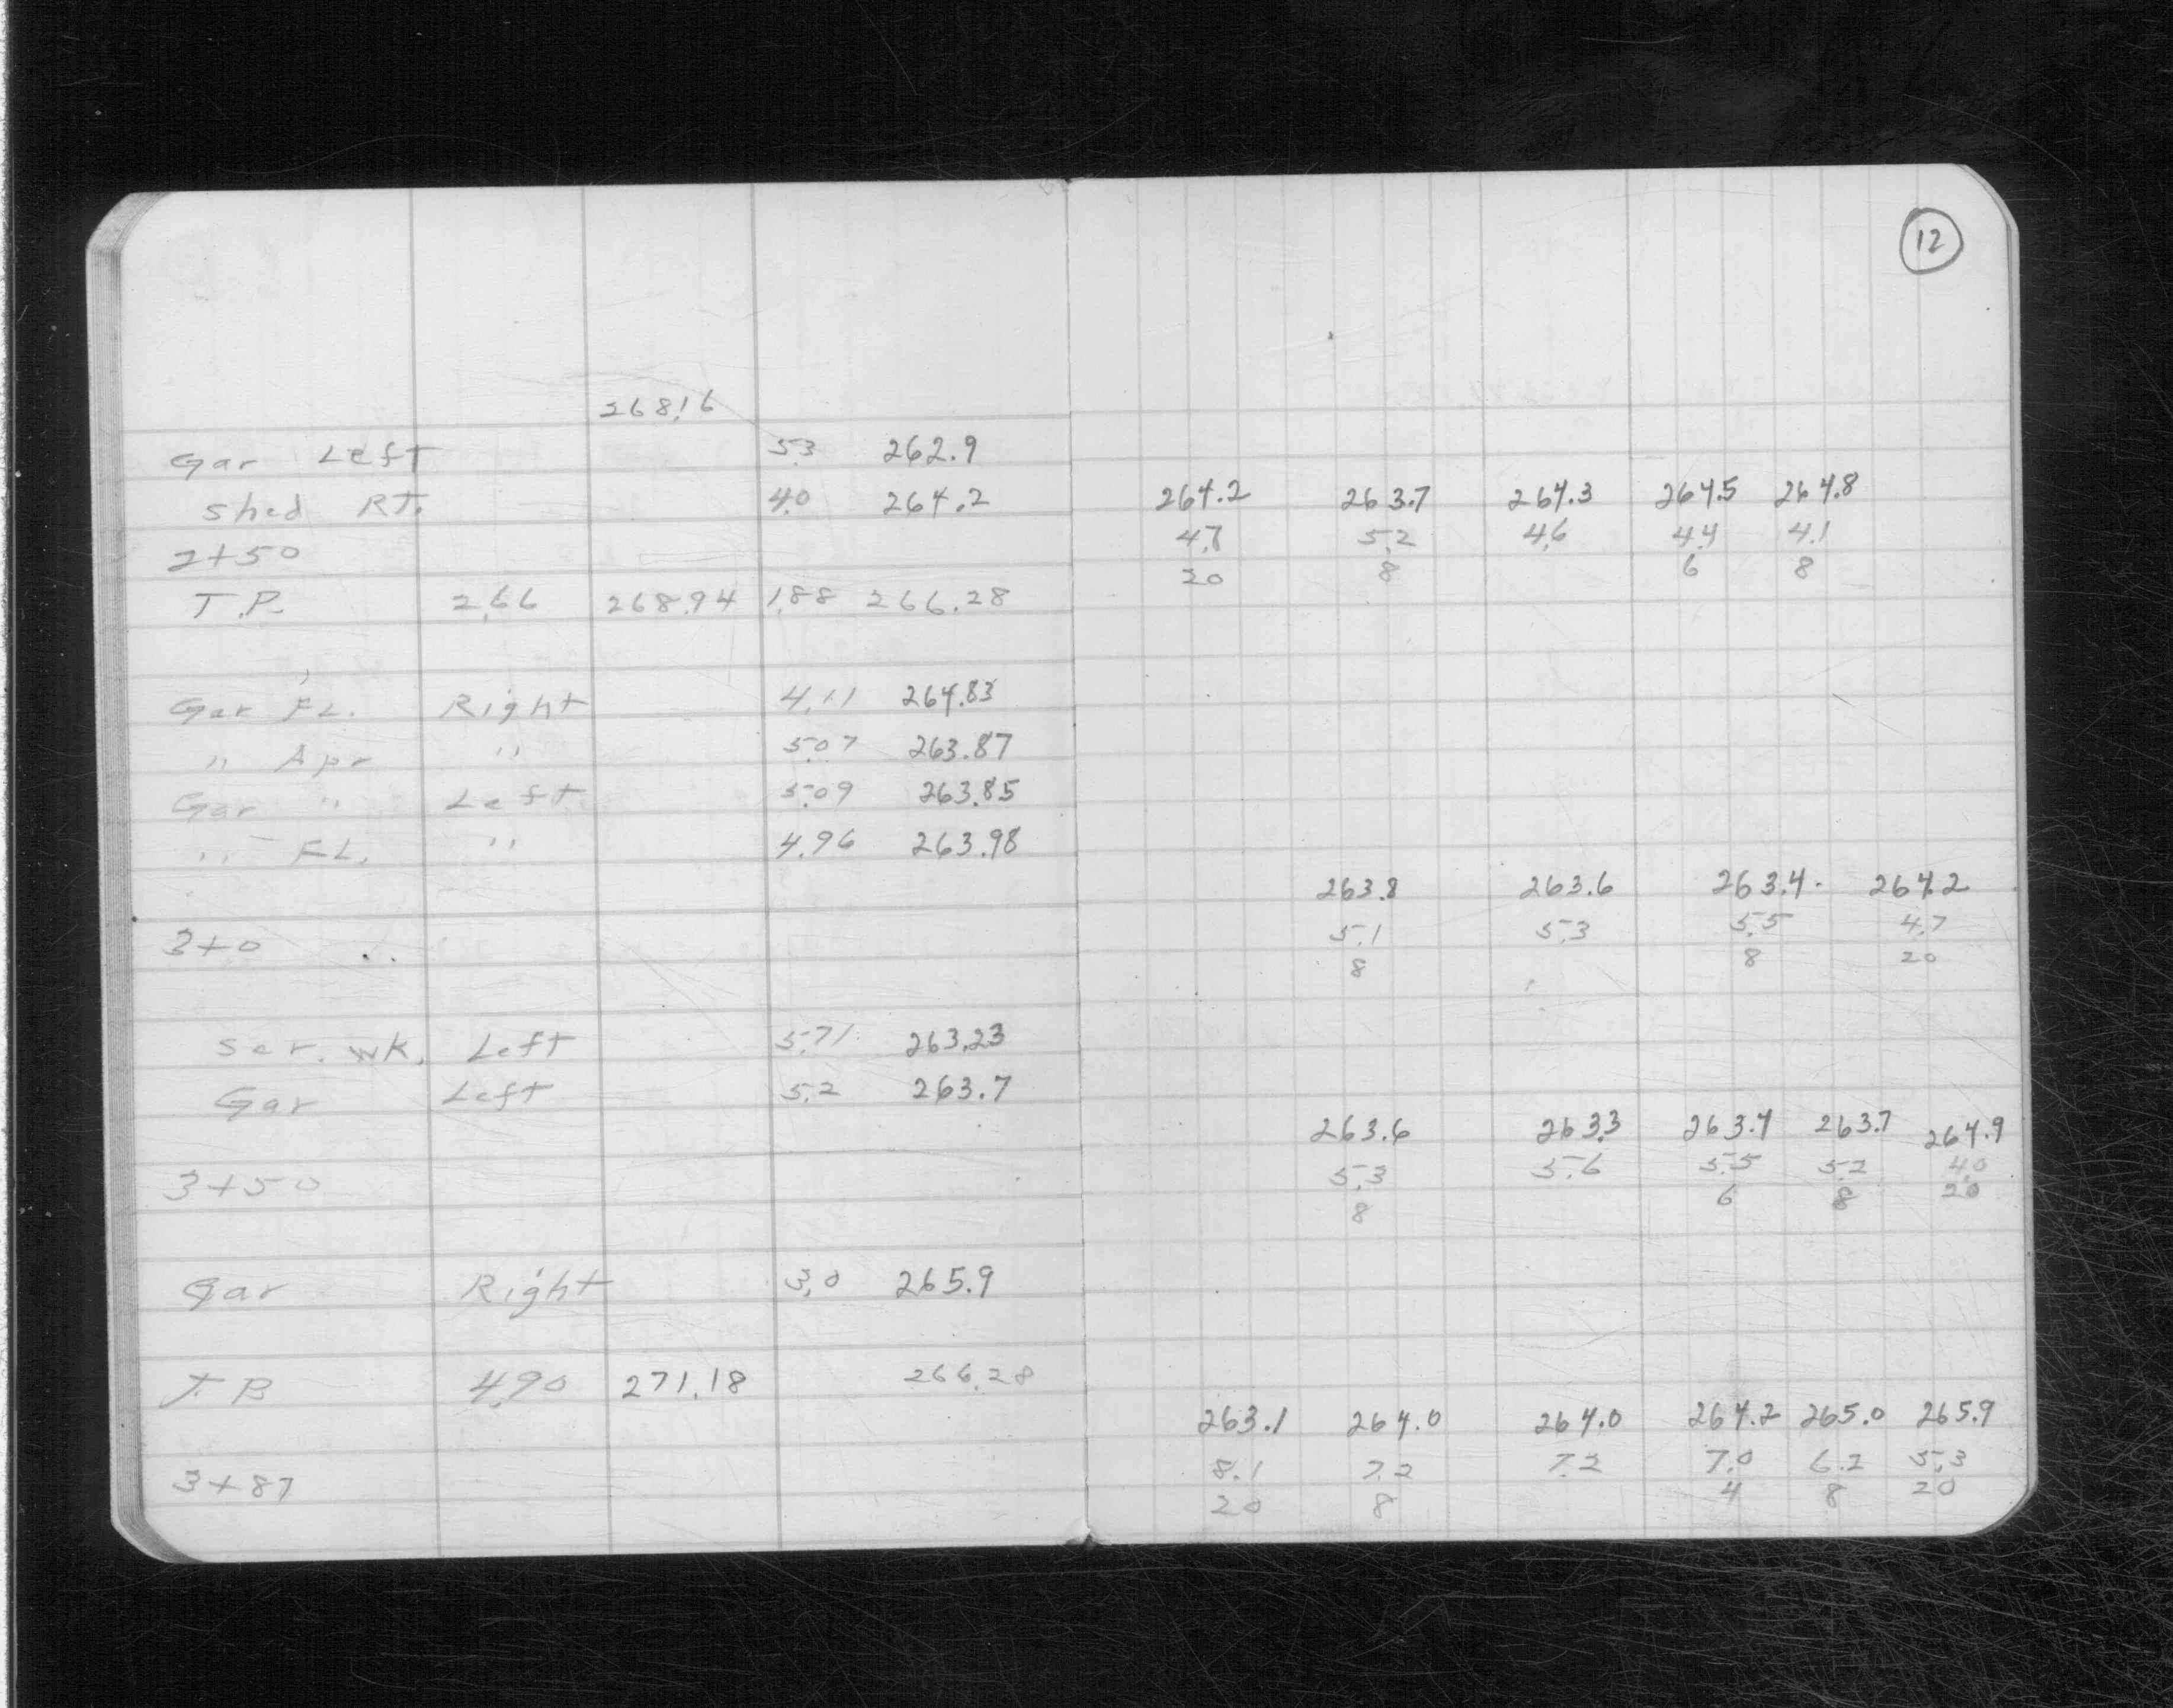 12
268.16
Gar Left 5.3 262.9
Shed RT. 4.0 264.2 264.2 263.7 264.3 264.5 264.8
4.7 5.2 4.6 4.4 4.1
2+50 20 8 6 8
T.P. 2.66 268.94 1.88 266.28
Gar FL. Right 4.11 264.83
" Apr " 5.07 263.87
Gar " Left 5.09 263.85
" FL. " 4.96 263.98
263.8 263.6 263.4 264.2
3+0 5.1 5.3 5.5 4.7
8 8 20
Ser. WK. Left 5.71 263.23
Gar Left 5.2 263.7
263.6 263.3 263.4 263.7 264.9
3+50 5.3 5.6 5.5 5.2 4.0
8 6 8 20
Gar Right 3.0 265.9
T.B 4.90 271.18 266.28
263.1 264.0 264.0 264.2 265.0 265.9
3+87 8.1 7.2 7.2 7.0 6.2 5.3
20 8 4 8 20